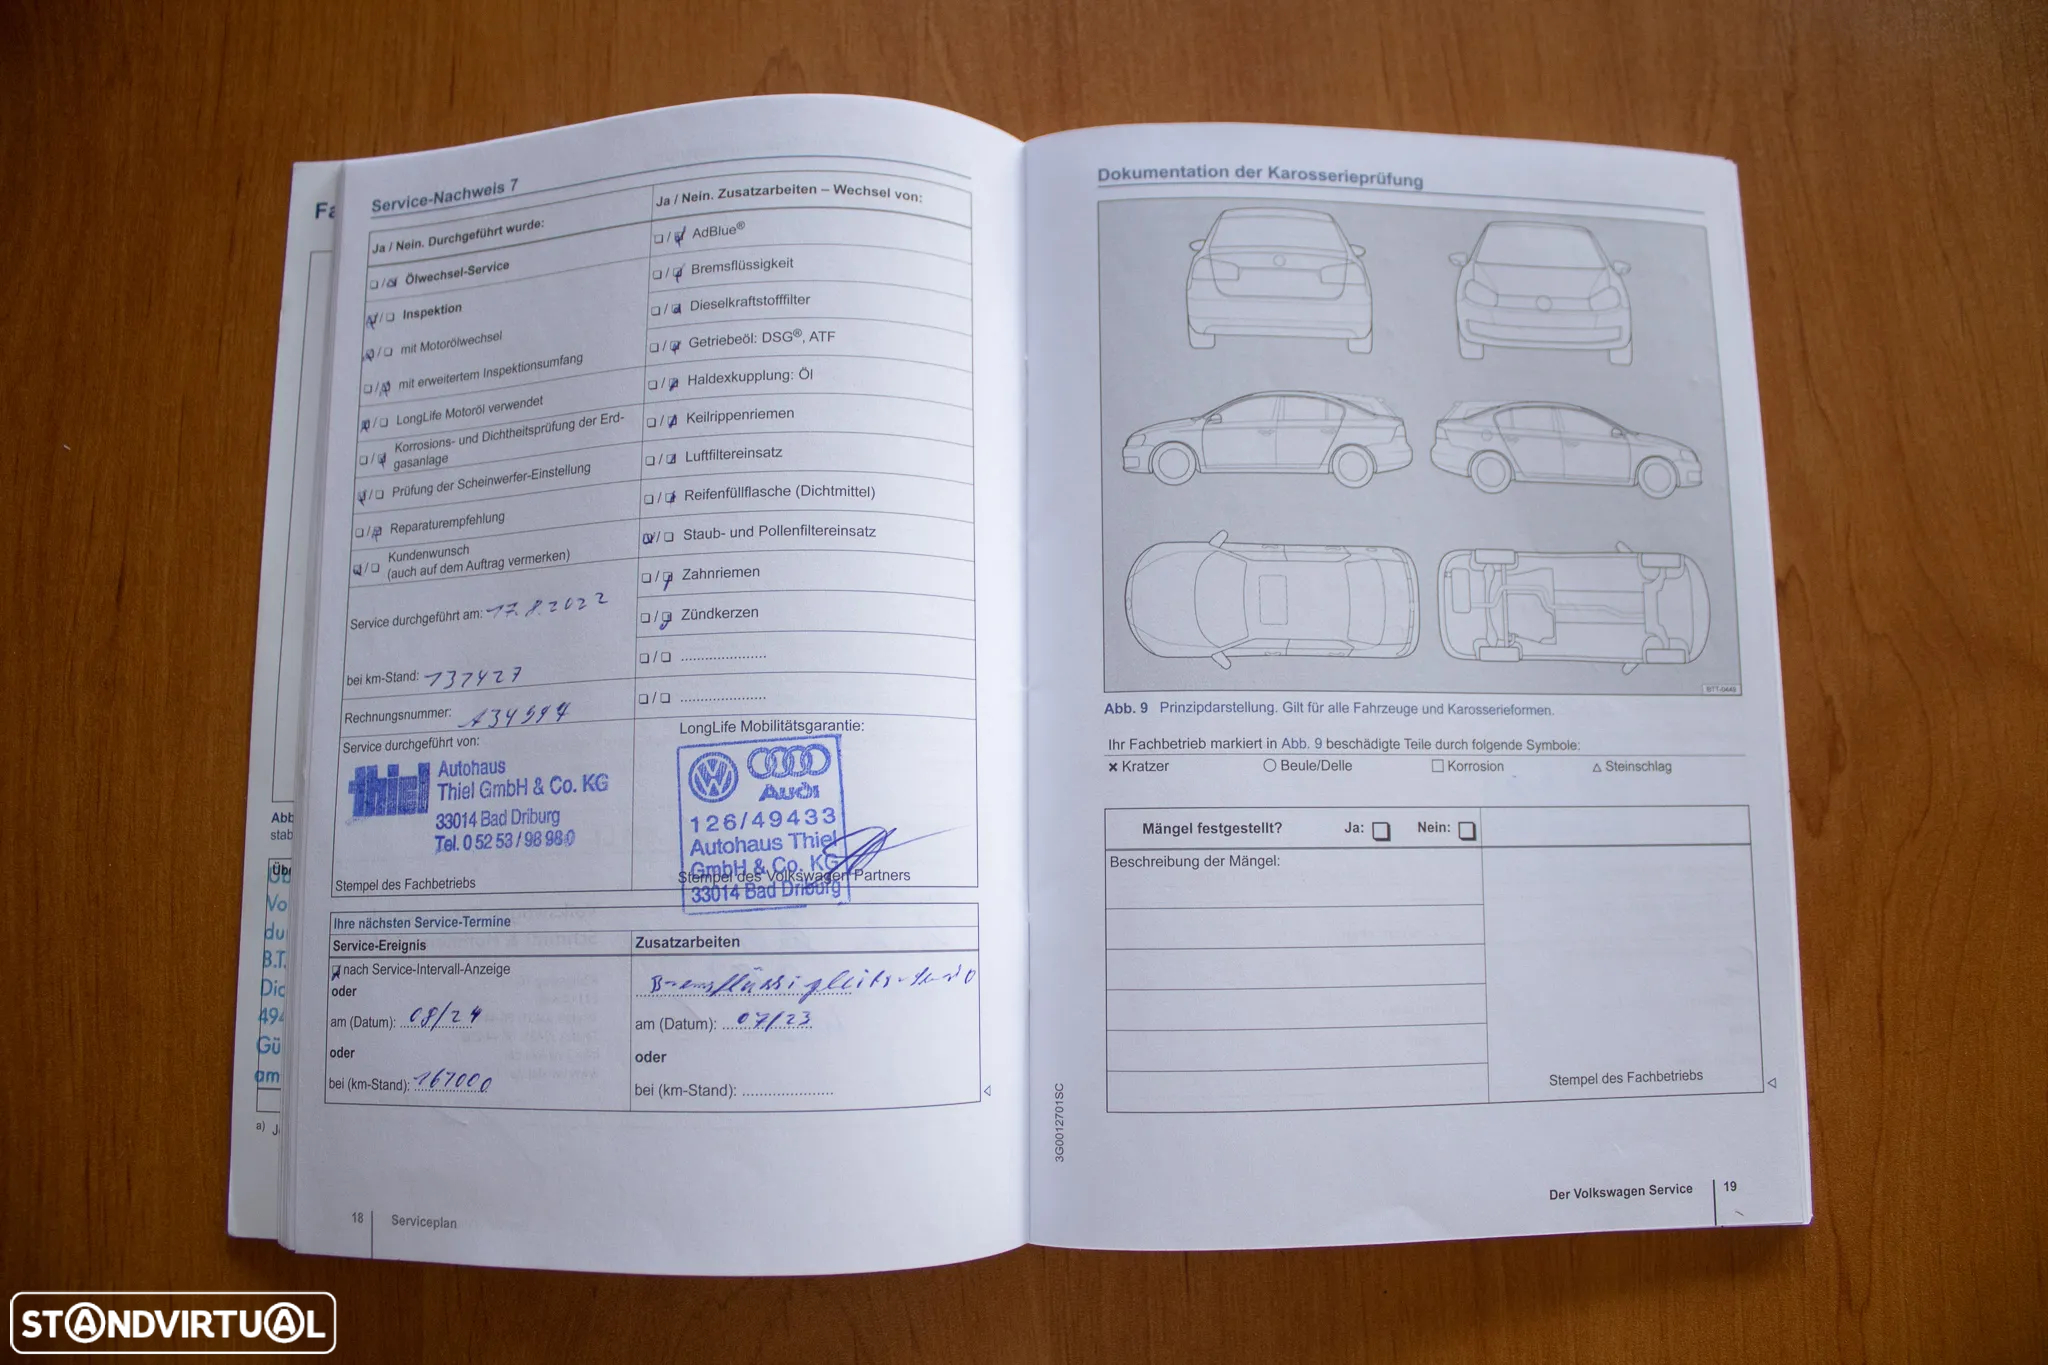 Fa
Service-Nachweis 7
Ja / Nein. Durchgeführt wurde:
Ölwechsel-Service
Inspektion
mit Motorölwechsel
mit erweitertem Inspektionsumfang
LongLife Motoröl verwendet
Korrosions- und Dichtheitsprüfung der Erd-
gasanlage
Prüfung der Scheinwerfer-Einstellung
Reparaturempfehlung
Kundenwunsch
(auch auf dem Auftrag vermerken)
Service durchgeführt am: 17.8.2022
bei km-Stand: 137427
Rechnungsnummer:
Service durchgeführt von:
thiel
Autohaus
Thiel GmbH & Co. KG
33014 Bad Driburg
Tel. 0 52 53 / 98 98 0
Stempel des Fachbetriebs
Ja / Nein. Zusatzarbeiten – Wechsel von:
AdBlue®
Bremsflüssigkeit
Dieselkraftstofffilter
Getriebeöl: DSG®, ATF
Haldexkupplung: Öl
Keilrippenriemen
Luftfiltereinsatz
Reifenfüllflasche (Dichtmittel)
Staub- und Pollenfiltereinsatz
Zahnriemen
Zündkerzen
LongLife Mobilitätsgarantie:
Audi
126/49433
Autohaus Thiel
GmbH & Co. KG
Stempel des Volkswagen Partners
33014 Bad Driburg
Ihre nächsten Service-Termine
Service-Ereignis
nach Service-Intervall-Anzeige
oder
am (Datum): 08/24
oder
bei (km-Stand): 167000
Zusatzarbeiten
am (Datum): 07/23
oder
bei (km-Stand):
18
Serviceplan
Abb
stab
Übr
Vo
du
B.T.
Dic
494
Gü
am
a) J
Dokumentation der Karosserieprüfung
BTT-0449
Abb. 9 Prinzipdarstellung. Gilt für alle Fahrzeuge und Karosserieformen.
Ihr Fachbetrieb markiert in Abb. 9 beschädigte Teile durch folgende Symbole:
× Kratzer ○ Beule/Delle □ Korrosion △ Steinschlag
Mängel festgestellt? Ja: Nein:
Beschreibung der Mängel:
Stempel des Fachbetriebs
3G0012701SC
Der Volkswagen Service
19
STANDVIRTUAL